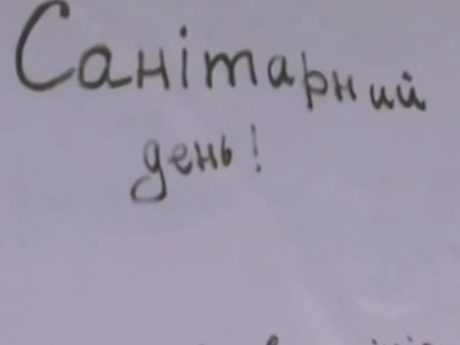 Санітарний
день!